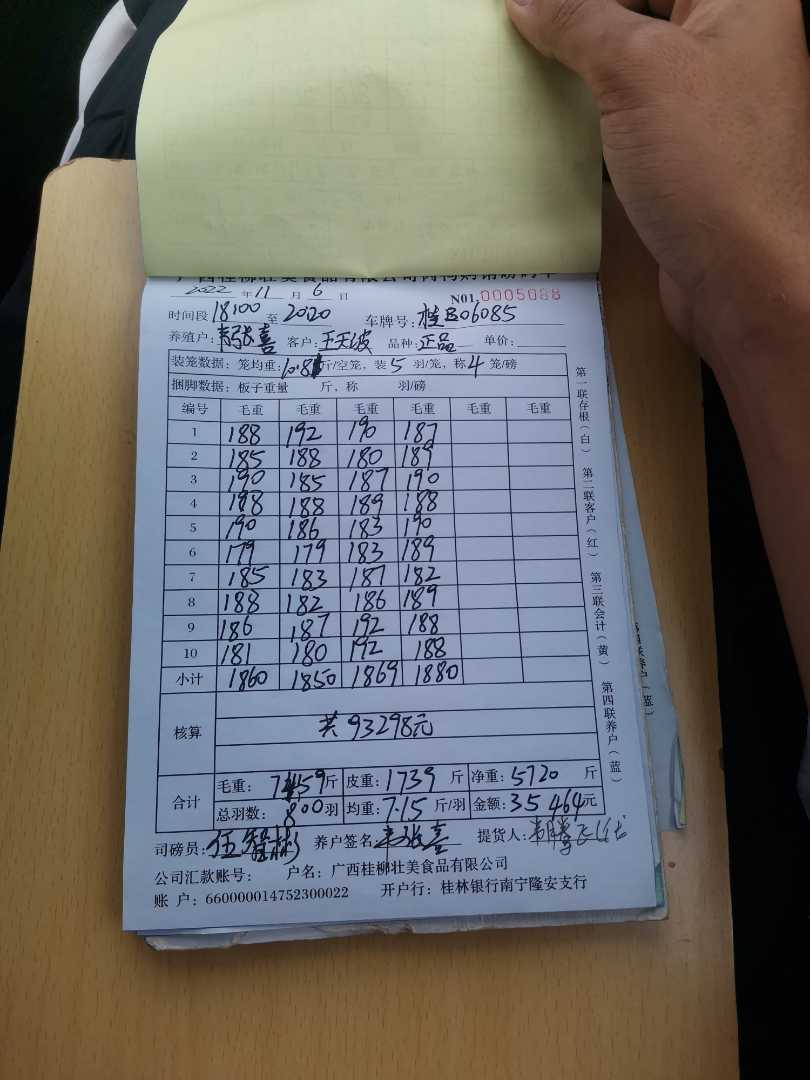 广西桂柳壮美食品有限公司
2022 年 11 月 6 日 N01.0005088
时间段 18:00 至 20:20 车牌号: 桂B06085
养殖户: 喜 客户: 王天波 品种: 正品 单价:
装笼数据: 笼均重: 10.8 斤/空笼, 装 5 羽/笼, 称 4 笼/磅
捆脚数据: 板子重量 斤, 称 羽/磅
编号 毛重 毛重 毛重 毛重 毛重 毛重
1 188 192 190 187
2 185 188 180 189
3 190 185 187 190
4 188 188 189 188
5 190 186 183 190
6 179 179 183 189
7 185 183 187 182
8 188 182 186 189
9 186 187 192 188
10 181 180 192 188
小计 1860 1850 1869 1880
核算 共 93298元
合计 毛重: 7459 斤 皮重: 1739 斤 净重: 5720 斤
总羽数: 800 羽 均重: 7.15 斤/羽 金额: 35464 元
司磅员: 伍智彬 养户签名 喜 提货人:
公司汇款账号: 户名: 广西桂柳壮美食品有限公司
账 户: 660000014752300022 开户行: 桂林银行南宁隆安支行
第一联存根(白) 第二联客户(红) 第三联会计(黄) 第四联养户(蓝)